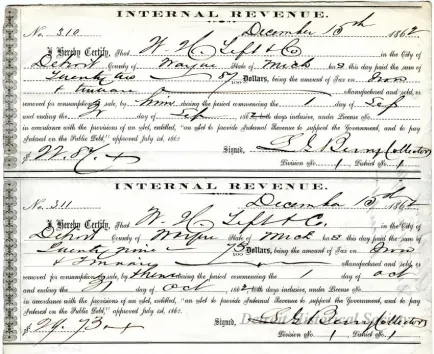 INTERNAL REVENUE.
No. 310 December 15th 1862
I Hereby Certify, That W. H. Tefft & Co in the City of
Detroit County of Wayne State of Mich has this day paid the sum of
Twenty two 87/100 Dollars, being the amount of Tax on Iron
& tinware Manufactured and sold, or
removed for consumption or sale, by them during the period commencing the 1 day of Sep
and ending the day of Sep 1862, days inclusive, under District License,
in accordance with the provisions of an act, entitled, "an act to provide Internal Revenue to support the Government, and to pay
Interest on the Public Debt," approved July 1st, 1862.
$22.87 Signed, Berry Collector
Division No. 1 District No. 1
INTERNAL REVENUE.
No. 311 December 15th 1862
I Hereby Certify, That W. H. Tefft & C. in the City of
Detroit County of Wayne State of Mich has this day paid the sum of
Twenty nine 73/100 Dollars, being the amount of Tax on Iron
& Tinware Manufactured and sold, or
removed for consumption or sale, by them during the period commencing the 1 day of Oct
and ending the 31 day of Oct 1862, days inclusive, under District License,
in accordance with the provisions of an act, entitled, "an act to provide Internal Revenue to support the Government, and to pay
Interest on the Public Debt," approved July 1st, 1862.
$29.73 Signed, Berry Collector
Division No. 1 District No. 1
Detroit Historical Society